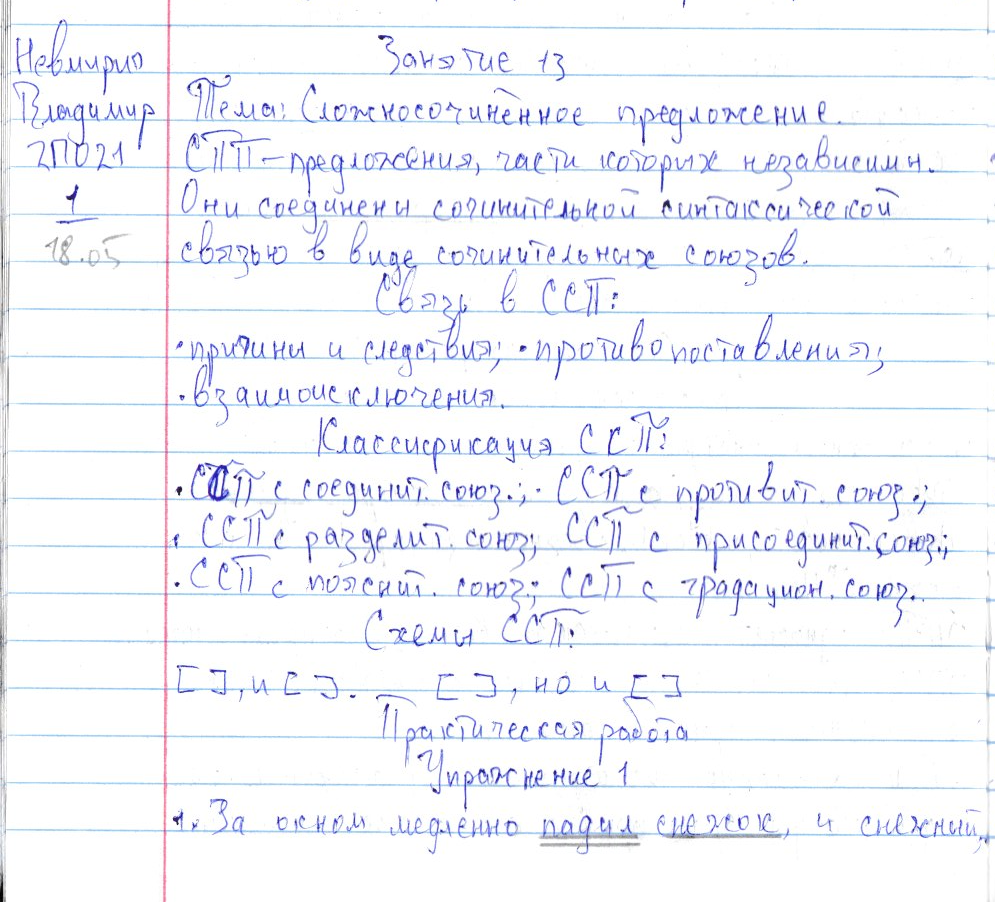 Невмирио
Владимир
2ПО21
1
18.05
Занятие 13
Тема: Сложносочинённое предложение.
СПП – предложения, части которых независимы.
Они соединены сочинительной синтаксической
связью в виде сочинительных союзов.
Связь в ССП:
·причины и следствия; ·противопоставления;
·взаимоисключения.
Классификация ССП:
·ССП с соединит. союз.; · ССП с противит. союз.;
· ССП с разделит. союз; ССП с присоединит. союз.;
·ССП с пояснит. союз.; ССП с градацион. союз..
Схемы ССП:
[ ], и [ ]. [ ], но и [ ]
Практическая работа
Упражнение 1
1. За окном медленно падал снежок, и снежный,